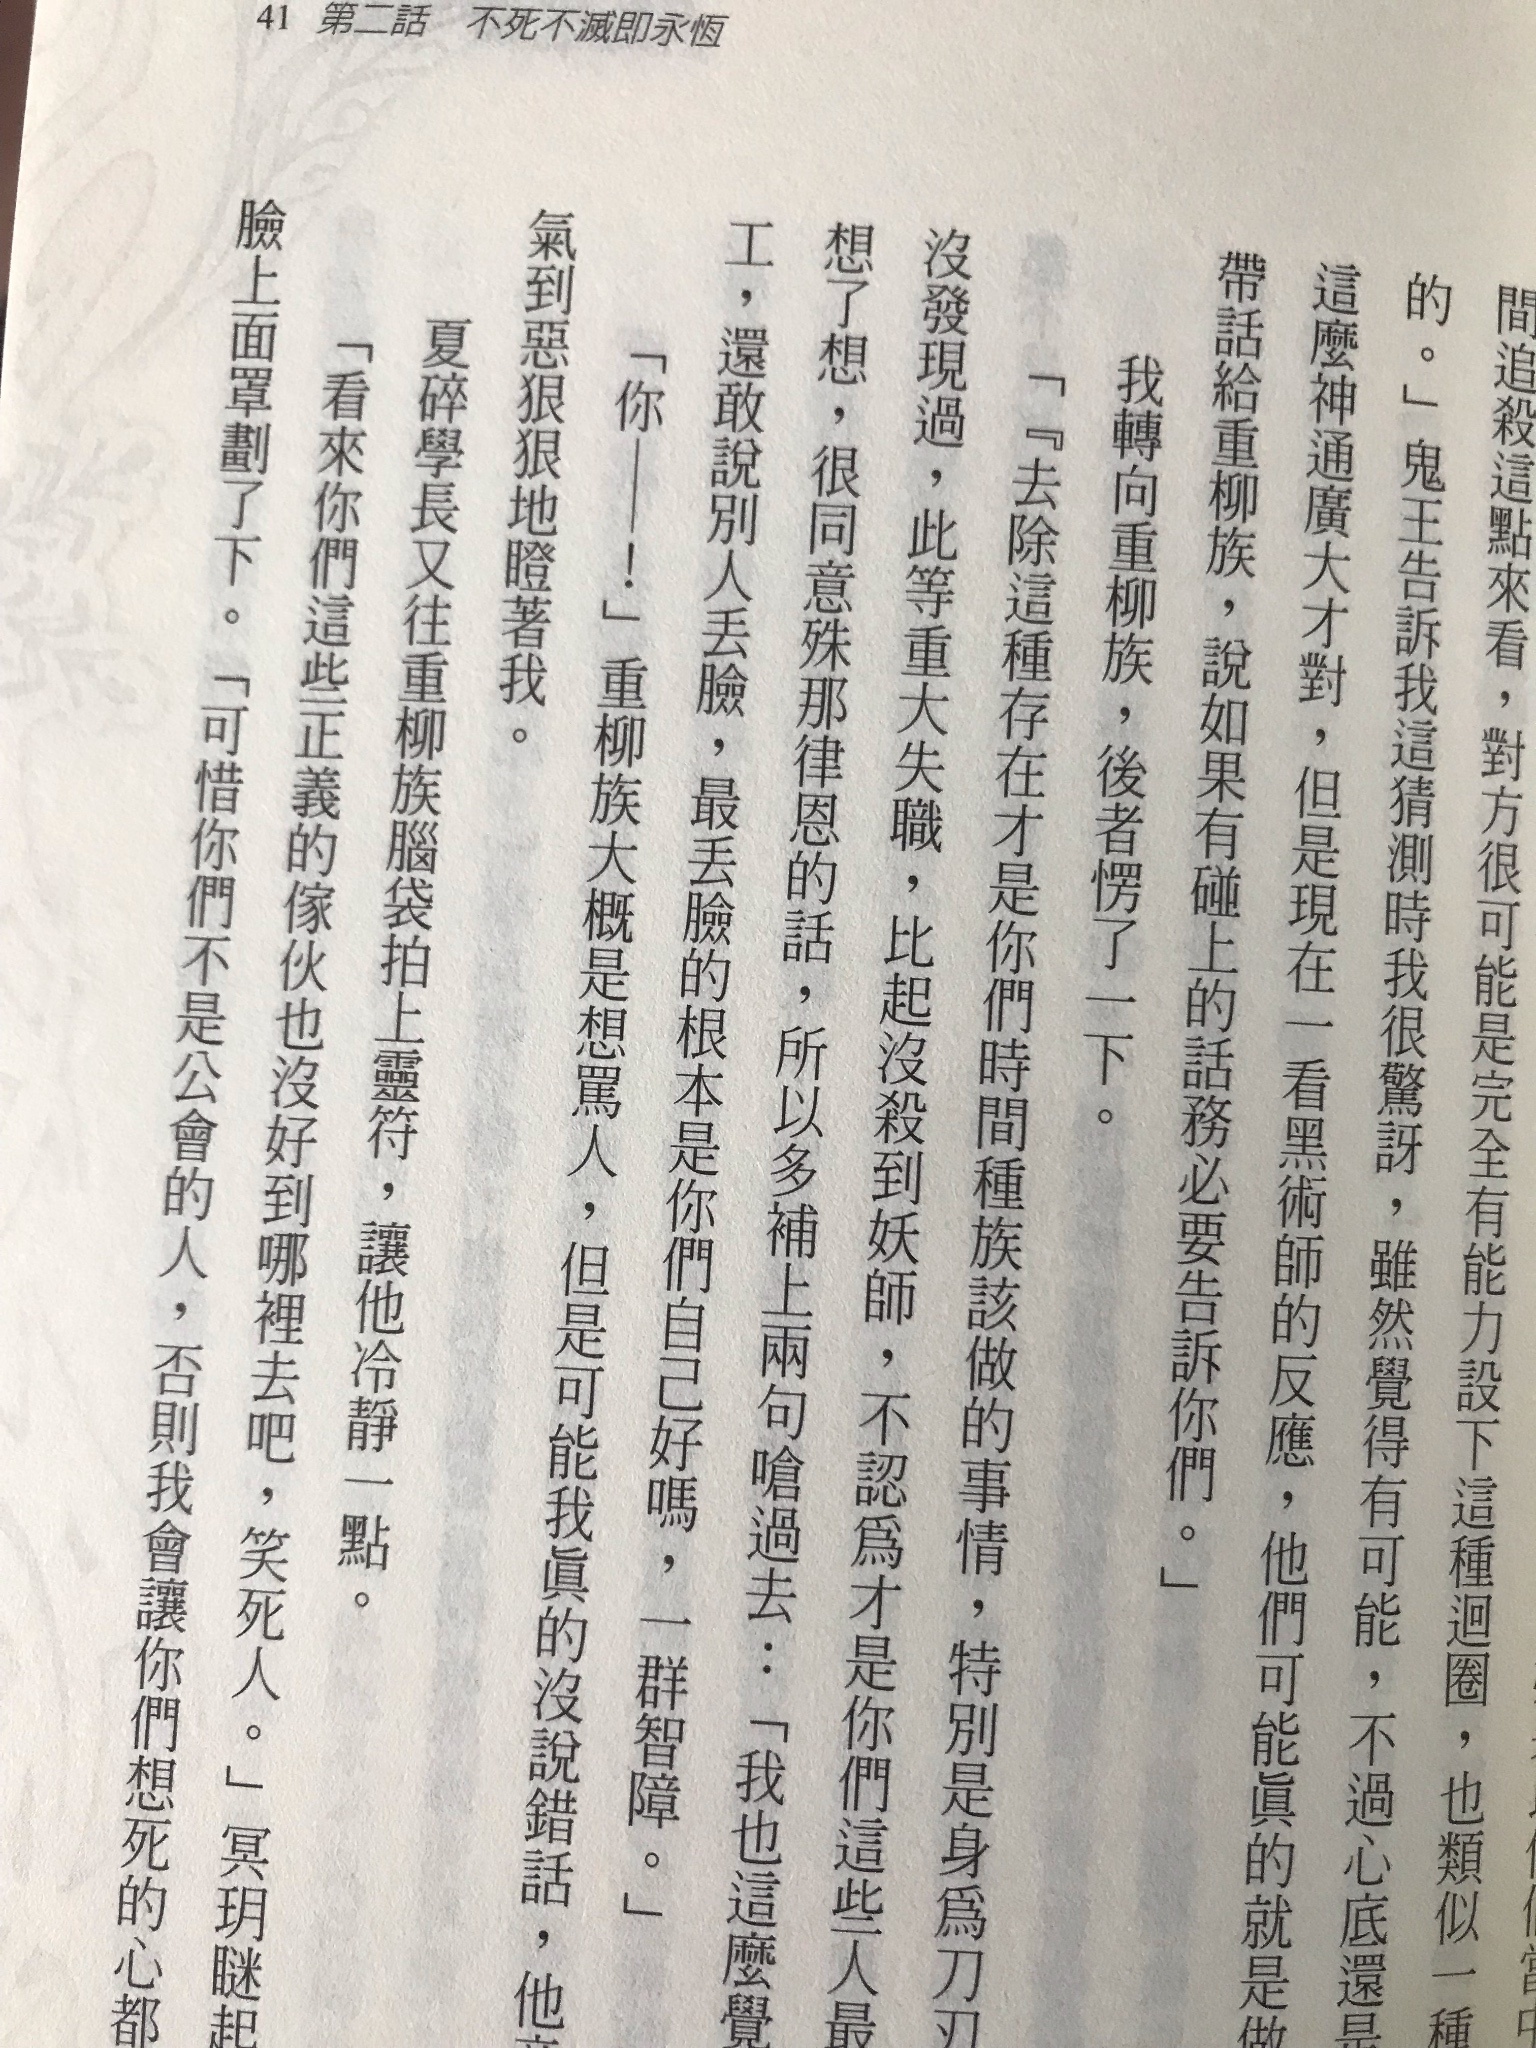 41 第二話 不死不滅即永恆
間追殺這點來看，對方很可能是完全有能力設下這種迴圈，也類似一種
的。」鬼王告訴我這猜測時我很驚訝，雖然覺得有可能，不過心底還是
這麼神通廣大才對，但是現在一看黑術師的反應，他們可能真的就是做
帶話給重柳族，說如果有碰上的話務必要告訴你們。」
我轉向重柳族，後者愣了一下。
「『去除這種存在才是你們時間種族該做的事情，特別是身為刀刃
沒發現過，此等重大失職，比起沒殺到妖師，不認為才是你們這些人最
想了想，很同意殊那律恩的話，所以多補上兩句嗆過去：「我也這麼覺
工，還敢說別人丟臉，最丟臉的根本是你們自己好嗎，一群智障。」
「你——！」重柳族大概是想罵人，但是可能我真的沒說錯話，他
氣到惡狠狠地瞪著我。
夏碎學長又往重柳族腦袋拍上靈符，讓他冷靜一點。
「看來你們這些正義的傢伙也沒好到哪裡去吧，笑死人。」冥玥瞇起
臉上面罩劃了下。「可惜你們不是公會的人，否則我會讓你們想死的心都